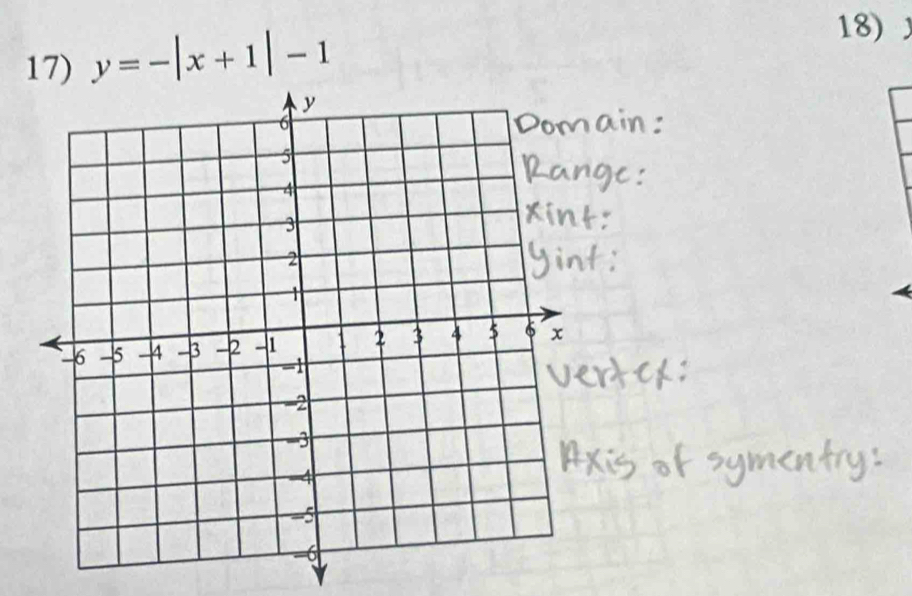 18)
17) y = -|x + 1| - 1
y
6
5
4
3
2
1
-6 -5 -4 -3 -2 -1 1 2 3 4 5 6 x
-1
-2
-3
-4
-5
-6
Domain:
Range:
xint:
yint:
vertex:
Axis of symentry: